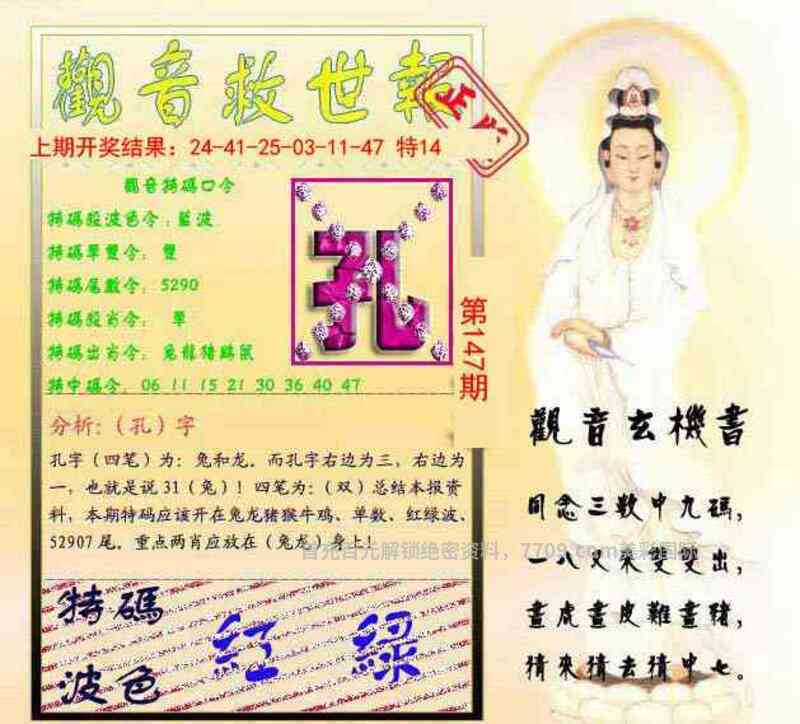 觀音救世報
正
上期开奖结果：24-41-25-03-11-47 特14
觀音特碼口令
特碼段波色令：藍波
特碼單雙令：雙
特碼尾數令：5290
特碼段肖令：單
特碼出肖令：兔龍豬鷄鼠
特中碼令：06 11 15 21 30 36 40 47
孔
第147期
分析:（孔）字
孔字（四笔）为：兔和龙。而孔字右边为三，右边为
一，也就是说31（兔）！四笔为：（双）总结本报资
料，本期特码应该开在兔龙猪猴牛鸡、单数、红绿波、
52907尾。重点两肖应放在（兔龙）身上！
特碼
波色
紅 綠
觀音玄機書
同念三数中九碼，
一八又來雙雙出，
畫虎畫皮難畫豬，
猜來猜去猜中七。
解锁绝密资料，7709.com